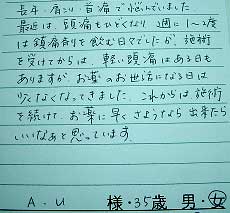 長年、肩こり・首痛で悩んでいました
最近は、頭痛もひどくなり 週に1〜2度
は鎮痛剤を飲む日々でしたが、施術
を受けてからは、軽い頭痛はある日も
ありますが、お薬のお世話になる日は
少なくなってきました。これからは、施術
を続け、お薬に早くさようなら出来たら
いいなあと思っています。
A.U 様・35歳 男・女